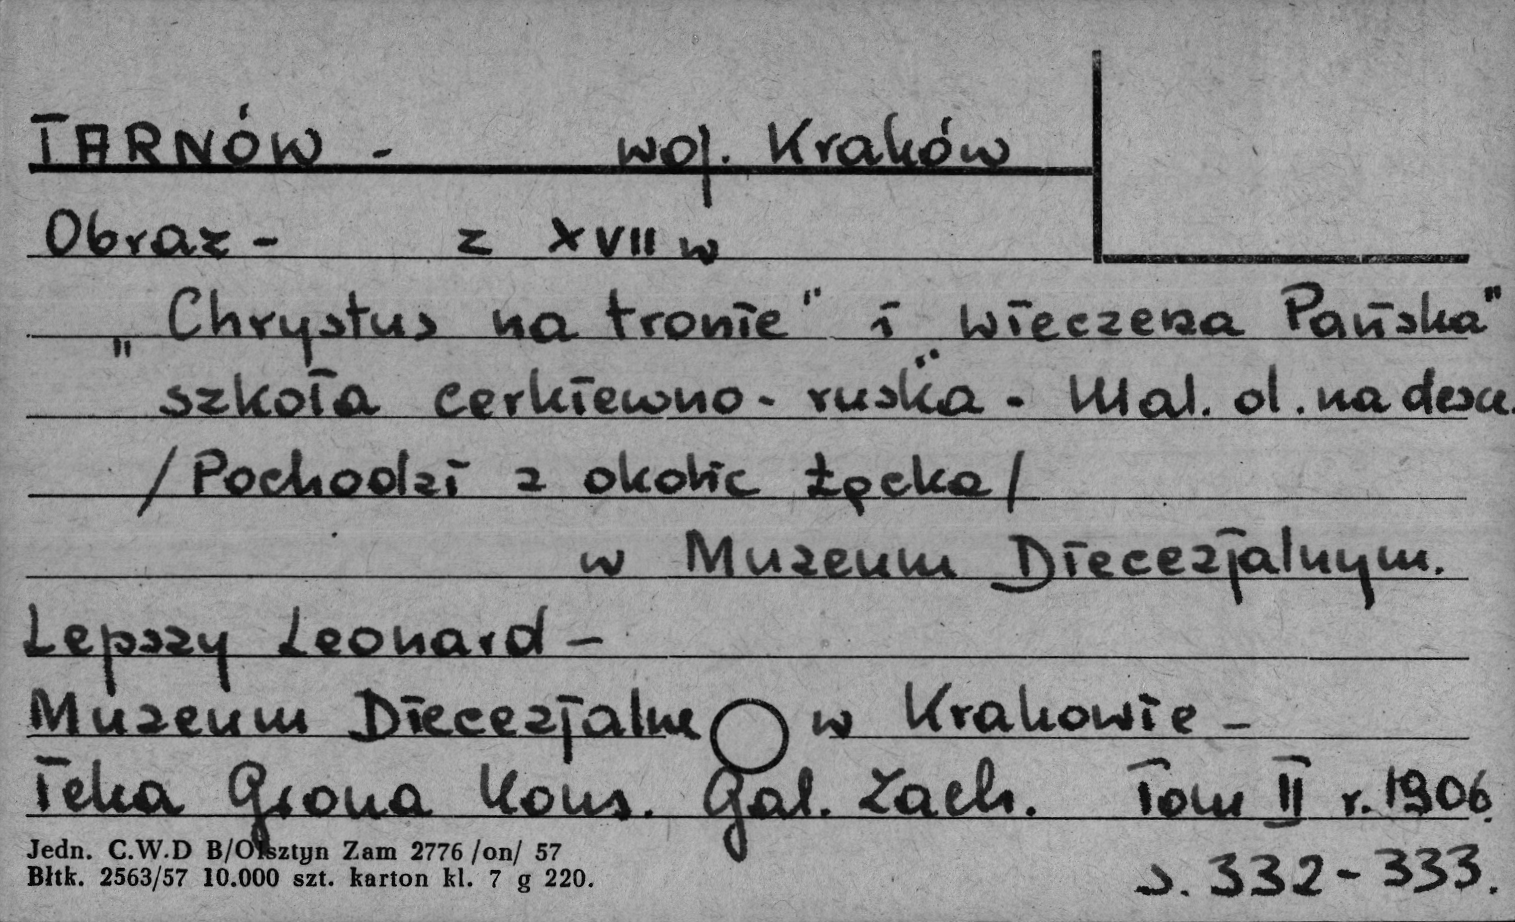 TARNÓW - woj. Kraków
Obraz - z XVII w
"Chrystus na tronie" i wieczerza Pańska"
szkoła cerkiewno-ruska - Mal. ol. na desce.
/Pochodzi z okolic /
w Muzeum Diecezjalnym.
Lepszy Leonard -
Muzeum Diecezjalne w Krakowie -
Teka Grona Kons. Gal. Zach. Tom II r. 1906.
s. 332-333.
Jedn. C.W.D B/Olsztyn Zam 2776 /on/ 57
Błtk. 2563/57 10.000 szt. karton kl. 7 g 220.